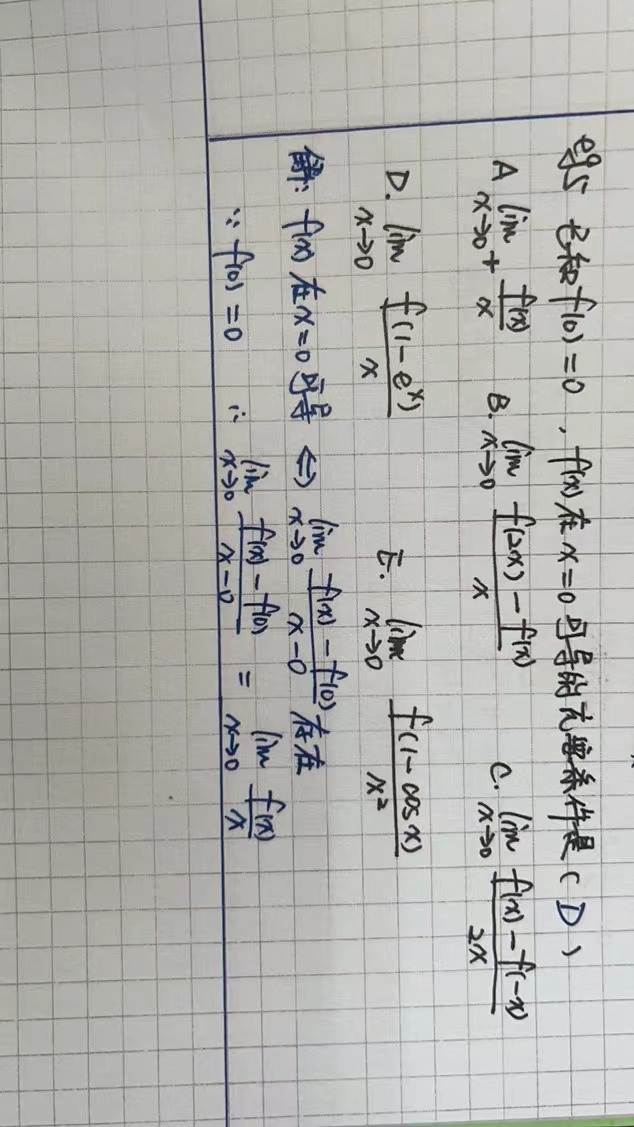 eg5 已知f(0)=0，f(x)在x=0可导的充要条件是（D）
A lim x→0+ f(x)/x B. lim x→0 f(2x)-f(x)/x C. lim x→0 f(x)-f(-x)/2x
D. lim x→0 f(1-eˣ)/x E. lim x→0 f(1-cosx)/x²
解: f(x)在x=0可导 ⇔ lim x→0 f(x)-f(0)/x-0 存在
∵ f(0)=0 ∴ lim x→0 f(x)-f(0)/x-0 = lim x→0 f(x)/x